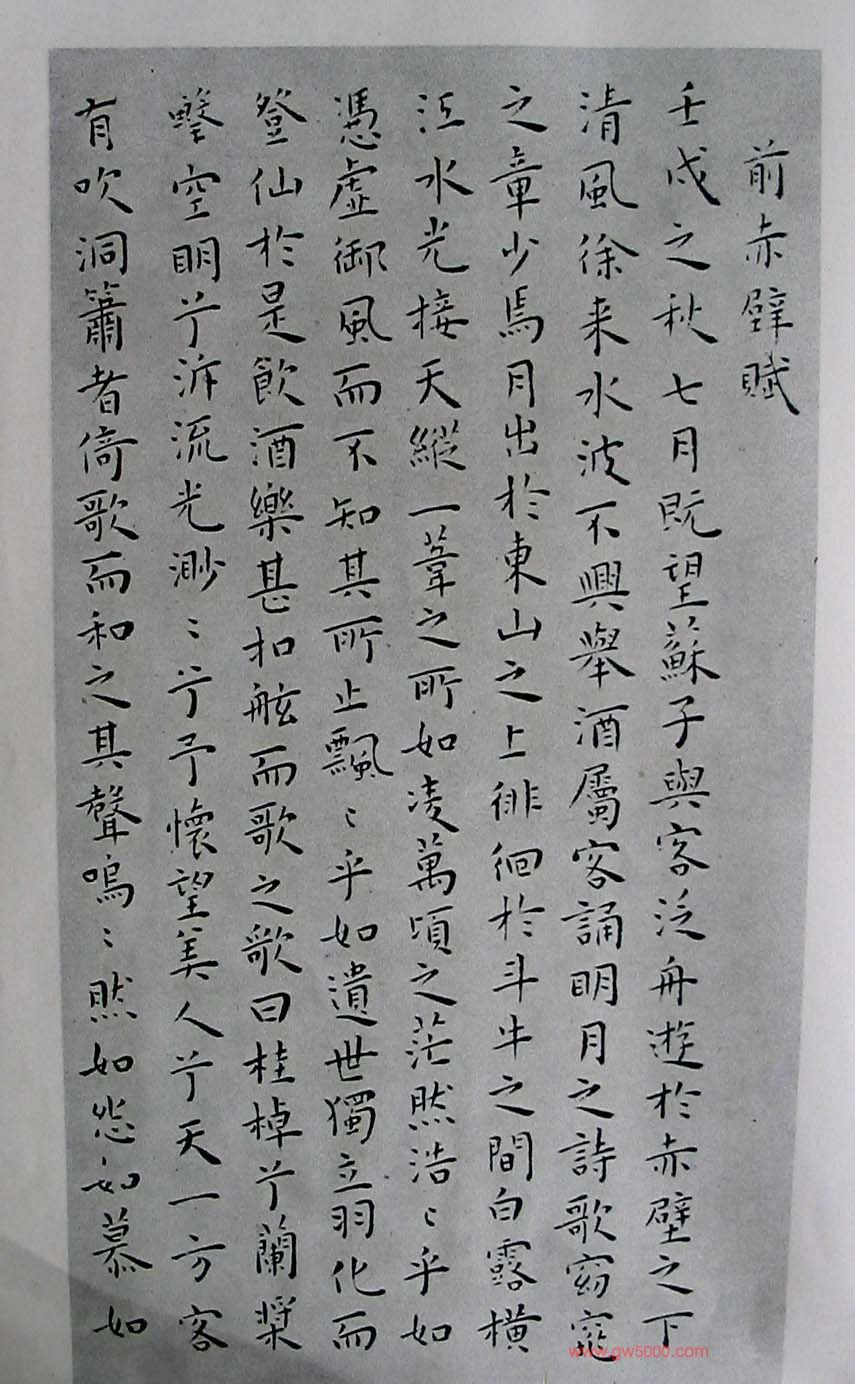 前赤壁賦
壬戌之秋七月既望蘇子與客泛舟遊於赤壁之下
清風徐来水波不興舉酒屬客誦明月之詩歌窈窕
之章少焉月出於東山之上徘徊於斗牛之間白露橫
江水光接天縱一葦之所如凌萬頃之茫然浩〻乎如
憑虛御風而不知其所止飄〻乎如遺世獨立羽化而
登仙於是飲酒樂甚扣舷而歌之歌曰桂棹兮蘭槳
擊空明兮泝流光渺〻兮予懷望美人兮天一方客
有吹洞簫者倚歌而和之其聲嗚〻然如怨如慕如
www.gw5000.com